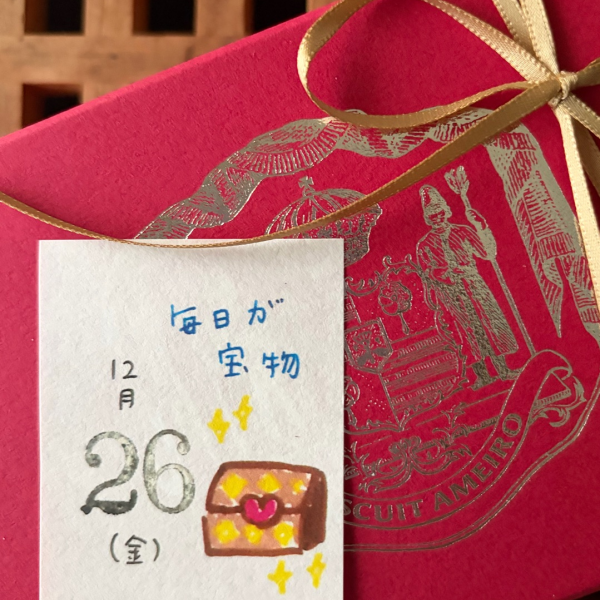 毎日が
宝物
12
月
26
(金)
SCUIT AMEIRO